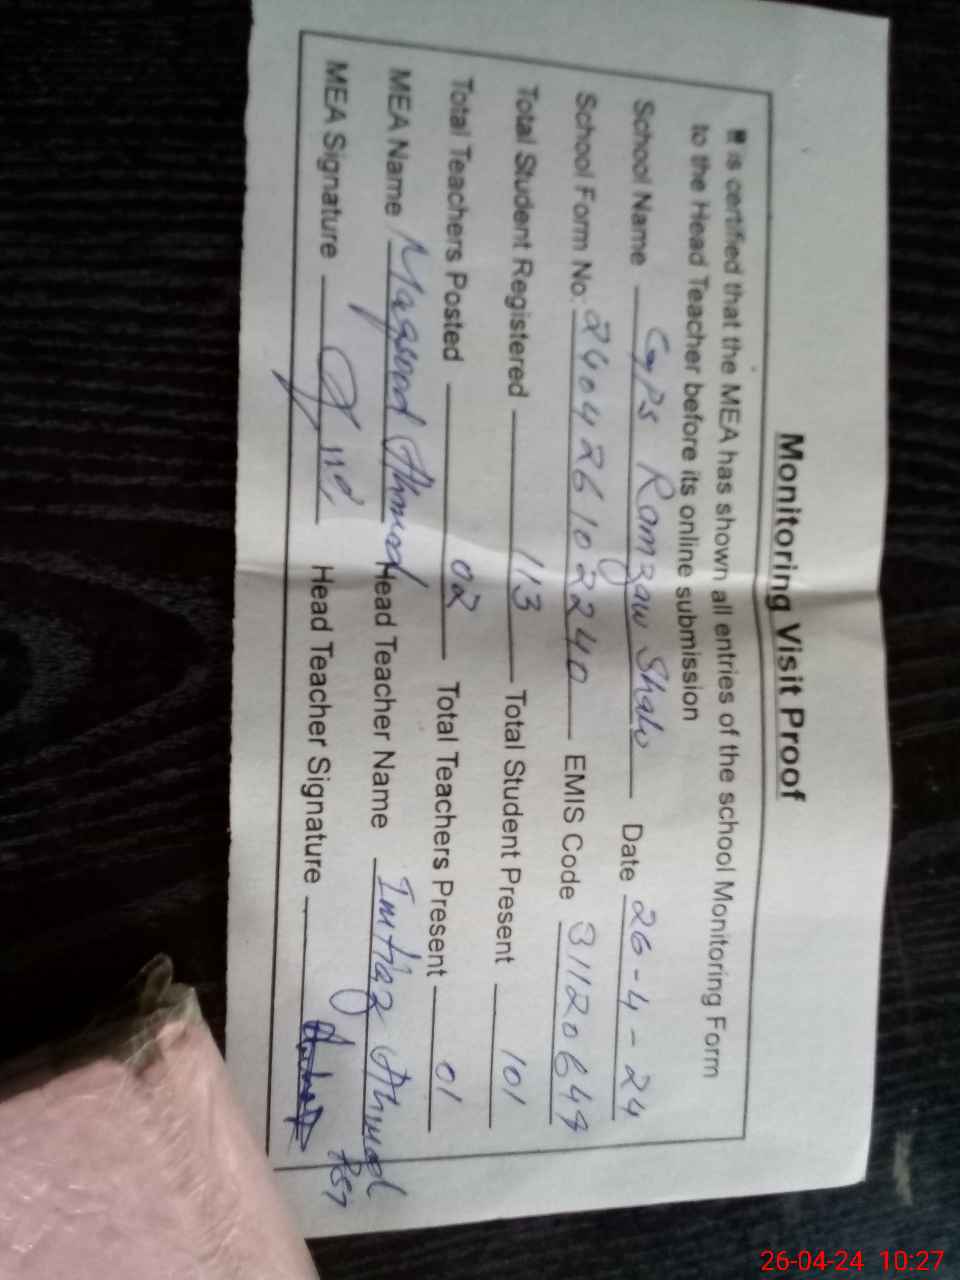 Monitoring Visit Proof
It is certified that the MEA has shown all entries of the school Monitoring Form
to the Head Teacher before its online submission
School Name GPS Ramzan Shah Date 26-4-24
School Form No. 240426102240 EMIS Code 31120649
Total Student Registered 113 Total Student Present 101
Total Teachers Posted 02 Total Teachers Present 01
MEA Name Maqsood Ahmad Head Teacher Name Imtiaz Ahmad
MEA Signature Head Teacher Signature
26-04-24 10:27